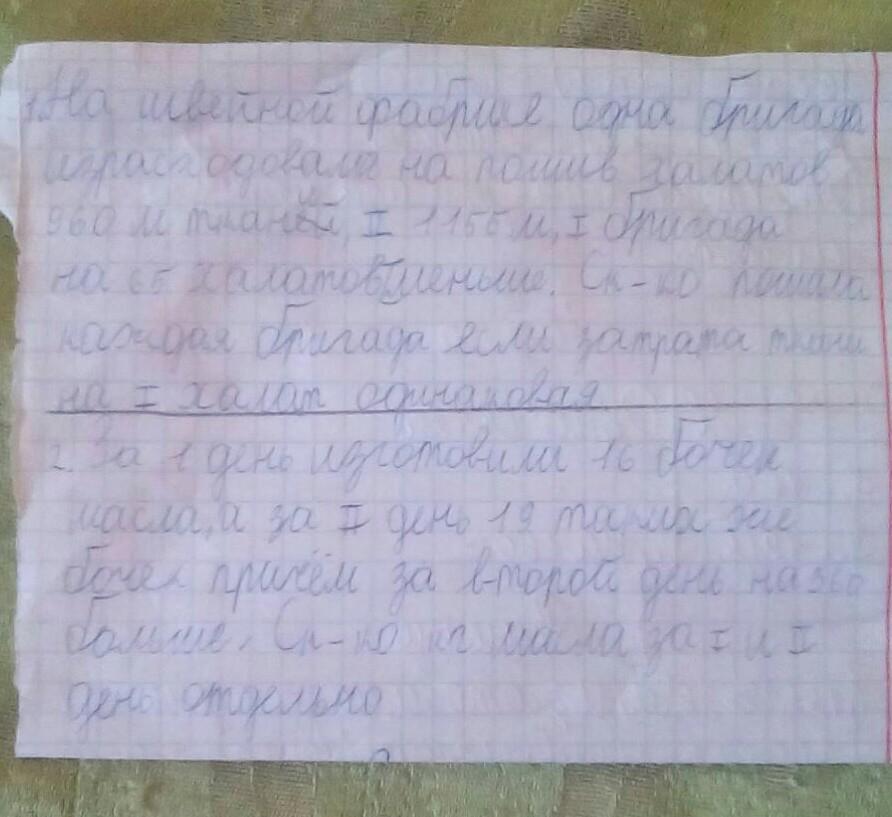 1. На швейной фабрике одна бригада
израсходовала на пошив халатов
960 м ткани, II 1155 м, I бригада
на 65 халатов меньше. Ск-ко пошила
каждая бригада если затрата ткани
на I халат одинаковая
2. За 1 день изготовили 16 бочек
масла, а за II день 19 таких же
бочек причём за второй день на 360
больше. Ск-ко кг масла за I и II
день отдельно